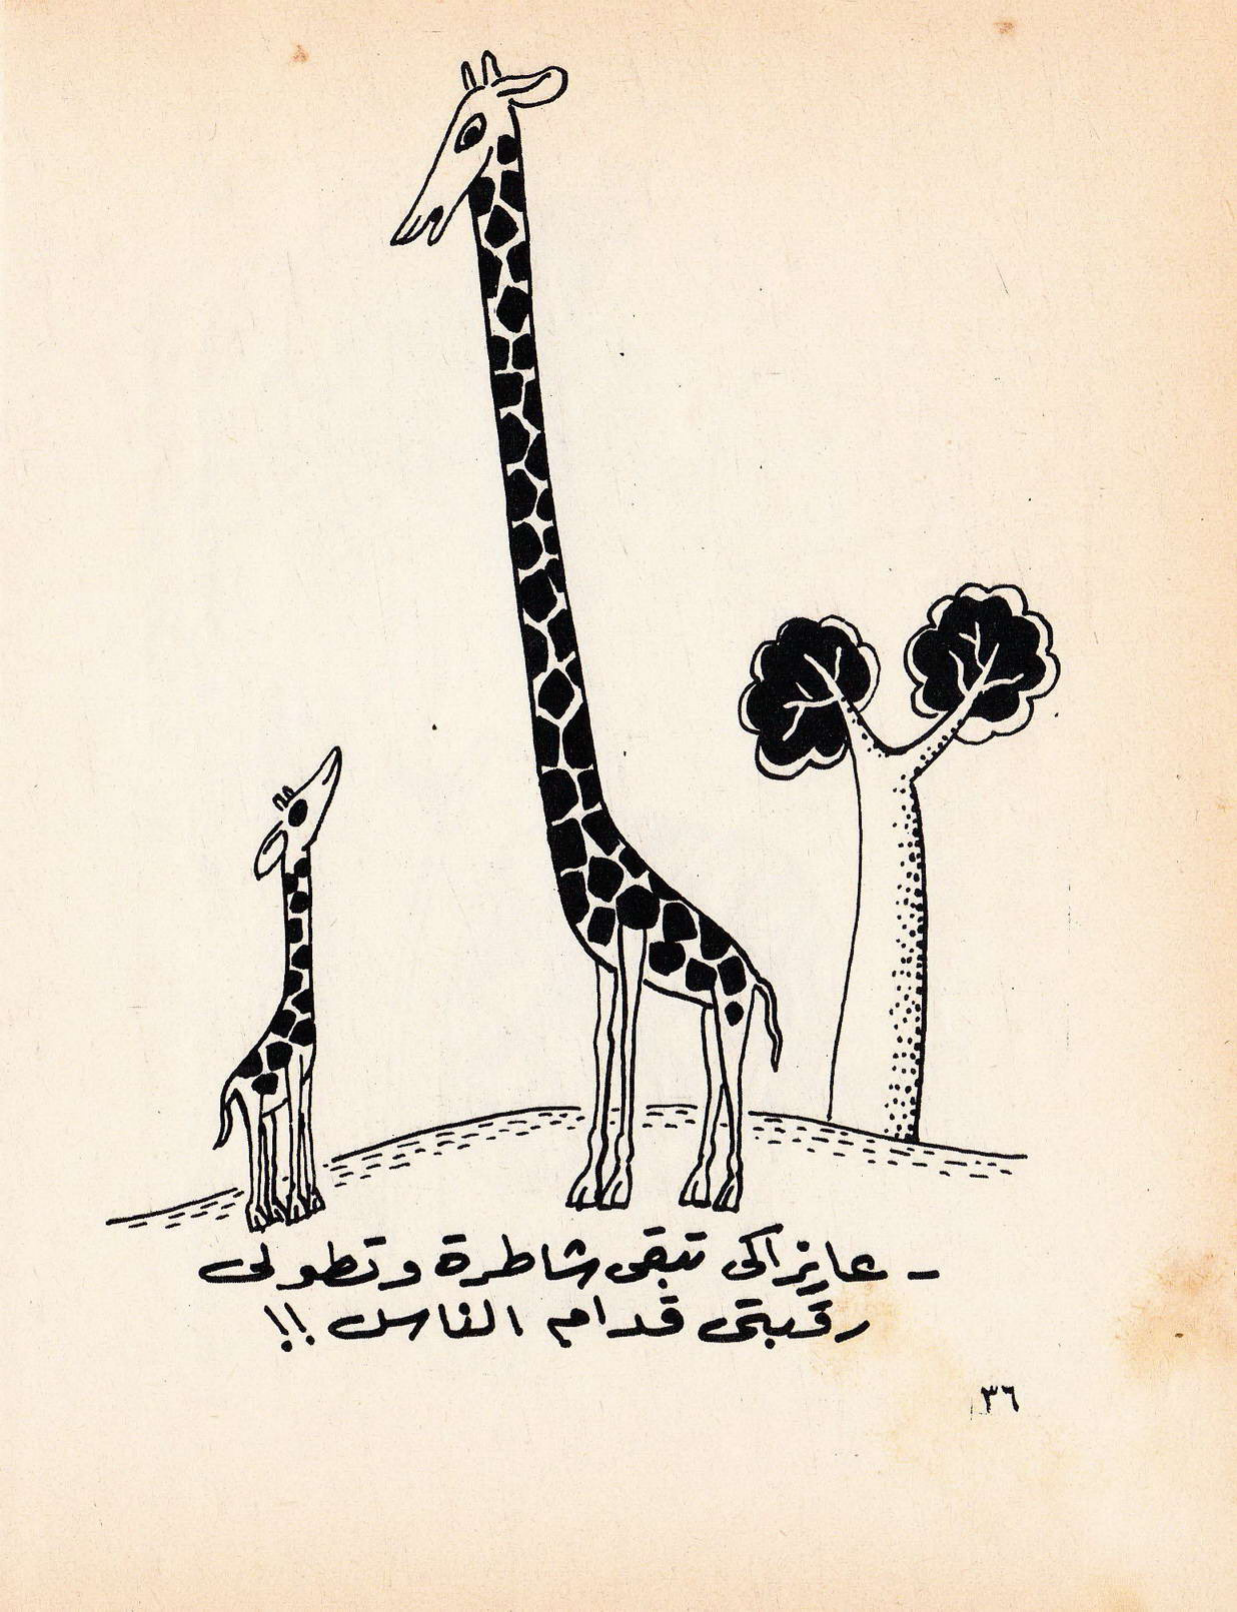 - عايزاكى تبقى شاطرة وتطولى
رقبتى قدام الناس !!
٣٦